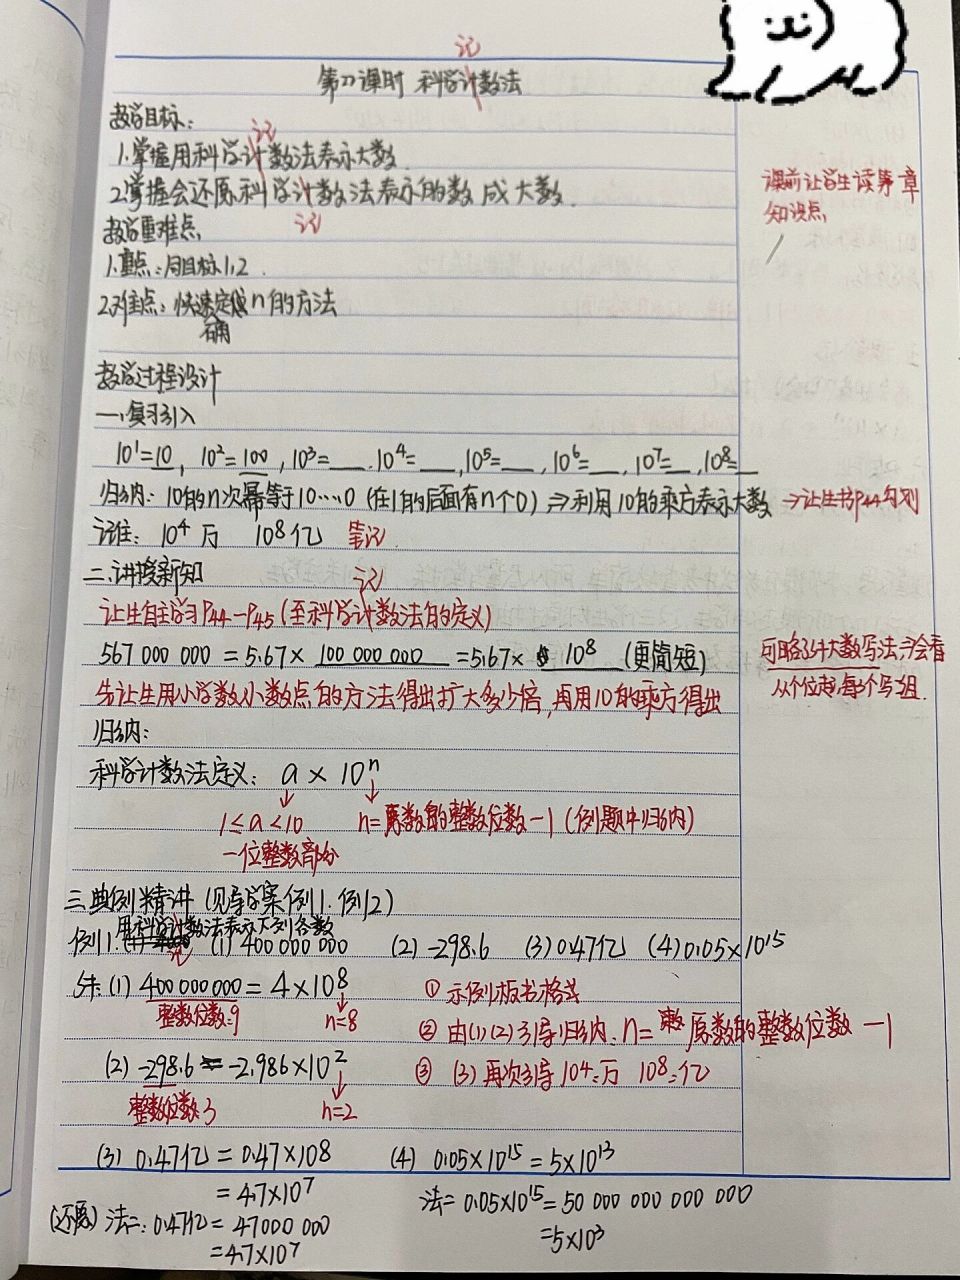 记
第17课时 科学计数法
教学目标:
记
1.掌握用科学计数法表示大数.
2.掌握会还原科学计数法表示的数成大数.
记
教学重难点
1.重点:同目标1,2.
2.难点:快速定n的方法
确
课前让学生读第 章
知识点,
教学过程设计
一、复习引入
10¹=10, 10²=100, 10³=__, 10⁴=__, 10⁵=__, 10⁶=__, 10⁷=__, 10⁸=__
归纳: 10的n次幂等于10⋯⋯0 (在1的后面有n个0) ⇒利用10的乘方表示大数 →让生书P44勾划
记住: 10⁴万 10⁸亿 笔记
二、讲授新知
记
让生自主学习P44-P45(至科学计数法的定义)
567 000 000 = 5.67× 100 000 000 =5.67× 10⁸ (更简短)
可略讲大数写法⇒会看
从个位起,每3个写1组.
先让生用小学数小数点的方法得出扩大多少倍,再用10的乘方得出
归纳:
科学计数法定义: a × 10ⁿ
1≤a<10 n=原数的整数位数-1 (例题中归纳)
一位整数部分
三.典例精讲 (见导学案例1.例2)
用科学计数法表示下列各数
记
例1. (1) 400 000 000 (2) -298.6 (3) 0.47亿 (4) 0.05×10¹⁵
解: (1) 400 000 000 = 4×10⁸ ① 示例板书格式
整数位数:9 n=8 ② 由(1)(2)引导归纳. n= 原数的整数位数 -1
(2) -298.6 = -2.986×10² ③ (3)再次引导 10⁴=万 10⁸=亿
整数位数3 n=2
(3) 0.47亿 = 0.47×10⁸ (4) 0.05×10¹⁵ = 5×10¹³
= 4.7×10⁷ 法二 0.05×10¹⁵ = 50 000 000 000 000
(还原) 法二: 0.47亿 = 47000 000 =5×10³
=4.7×10⁷